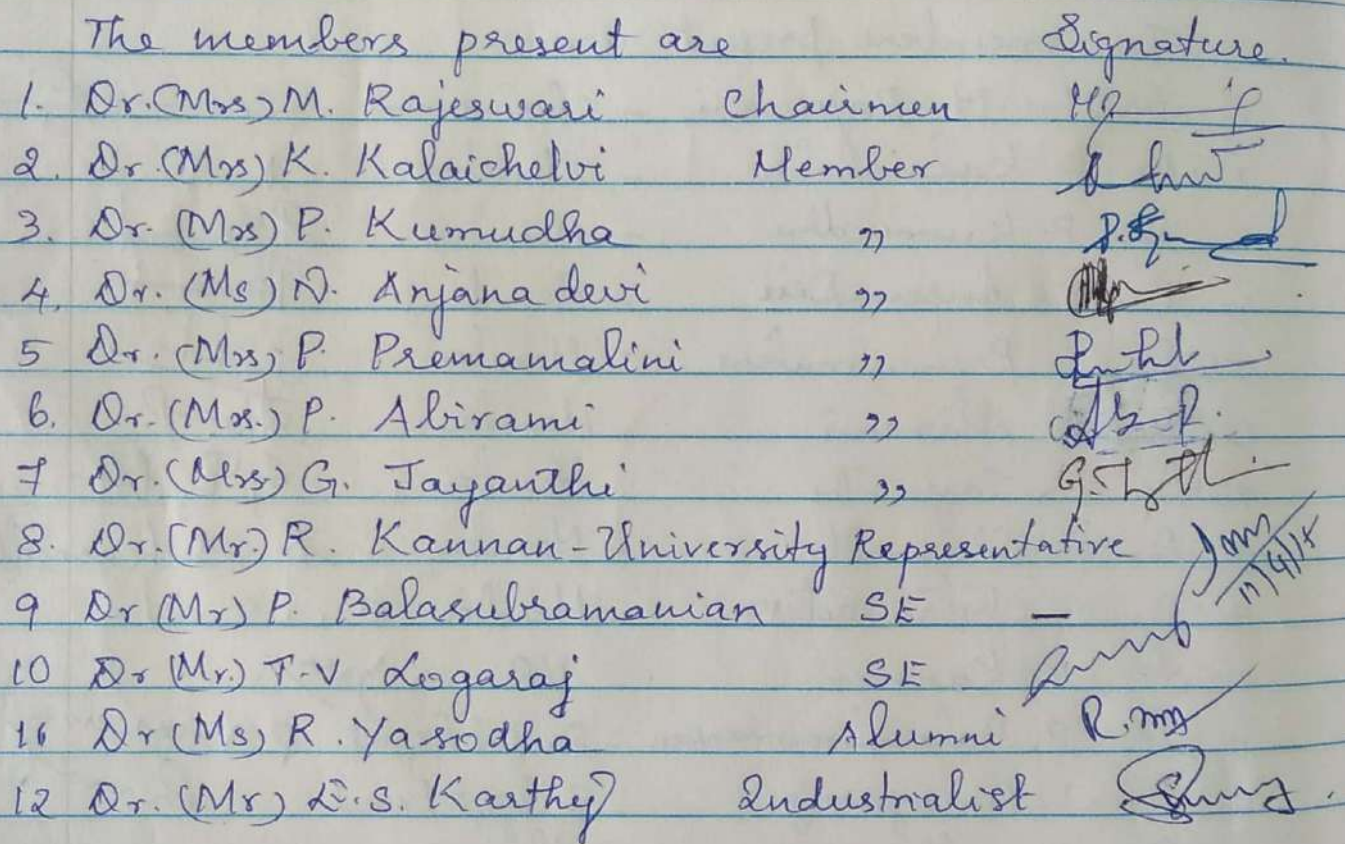 The members present are Signature.
1. Dr. (Mrs) M. Rajeswari Chairmen
2. Dr. (Mrs) K. Kalaichelvi Member
3. Dr. (Mrs) P. Kumudha ,,
4. Dr. (Ms) N. Anjana devi ,,
5 Dr. (Mrs) P. Premamalini ,,
6. Dr. (Mrs.) P. Abirami ,,
7 Dr. (Mrs) G. Jayanthi ,,
8. Dr. (Mr.) R. Kannan - University Representative
9 Dr (Mr) P. Balasubramanian SE —
10 Dr (Mr.) T.V Logaraj SE
11 Dr (Ms) R. Yasodha Alumni
12 Dr. (Mr) S. Industrialist